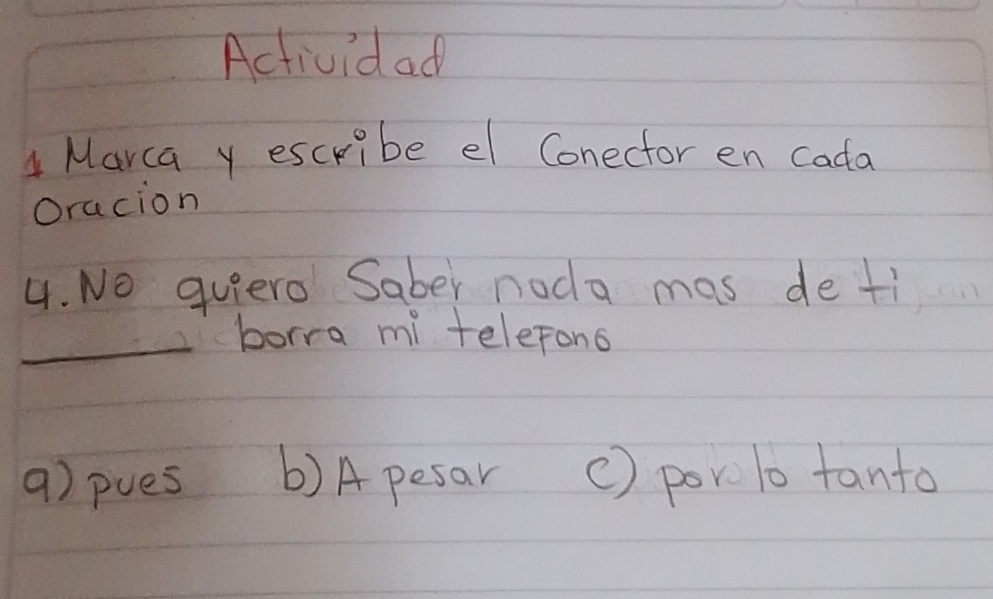 Actividad
1 Marca y escribe el Conector en cada
Oracion
4. No quiero Saber nada mas de ti
________ borra mi telefono
a) pues b) A pesar c) por lo tanto